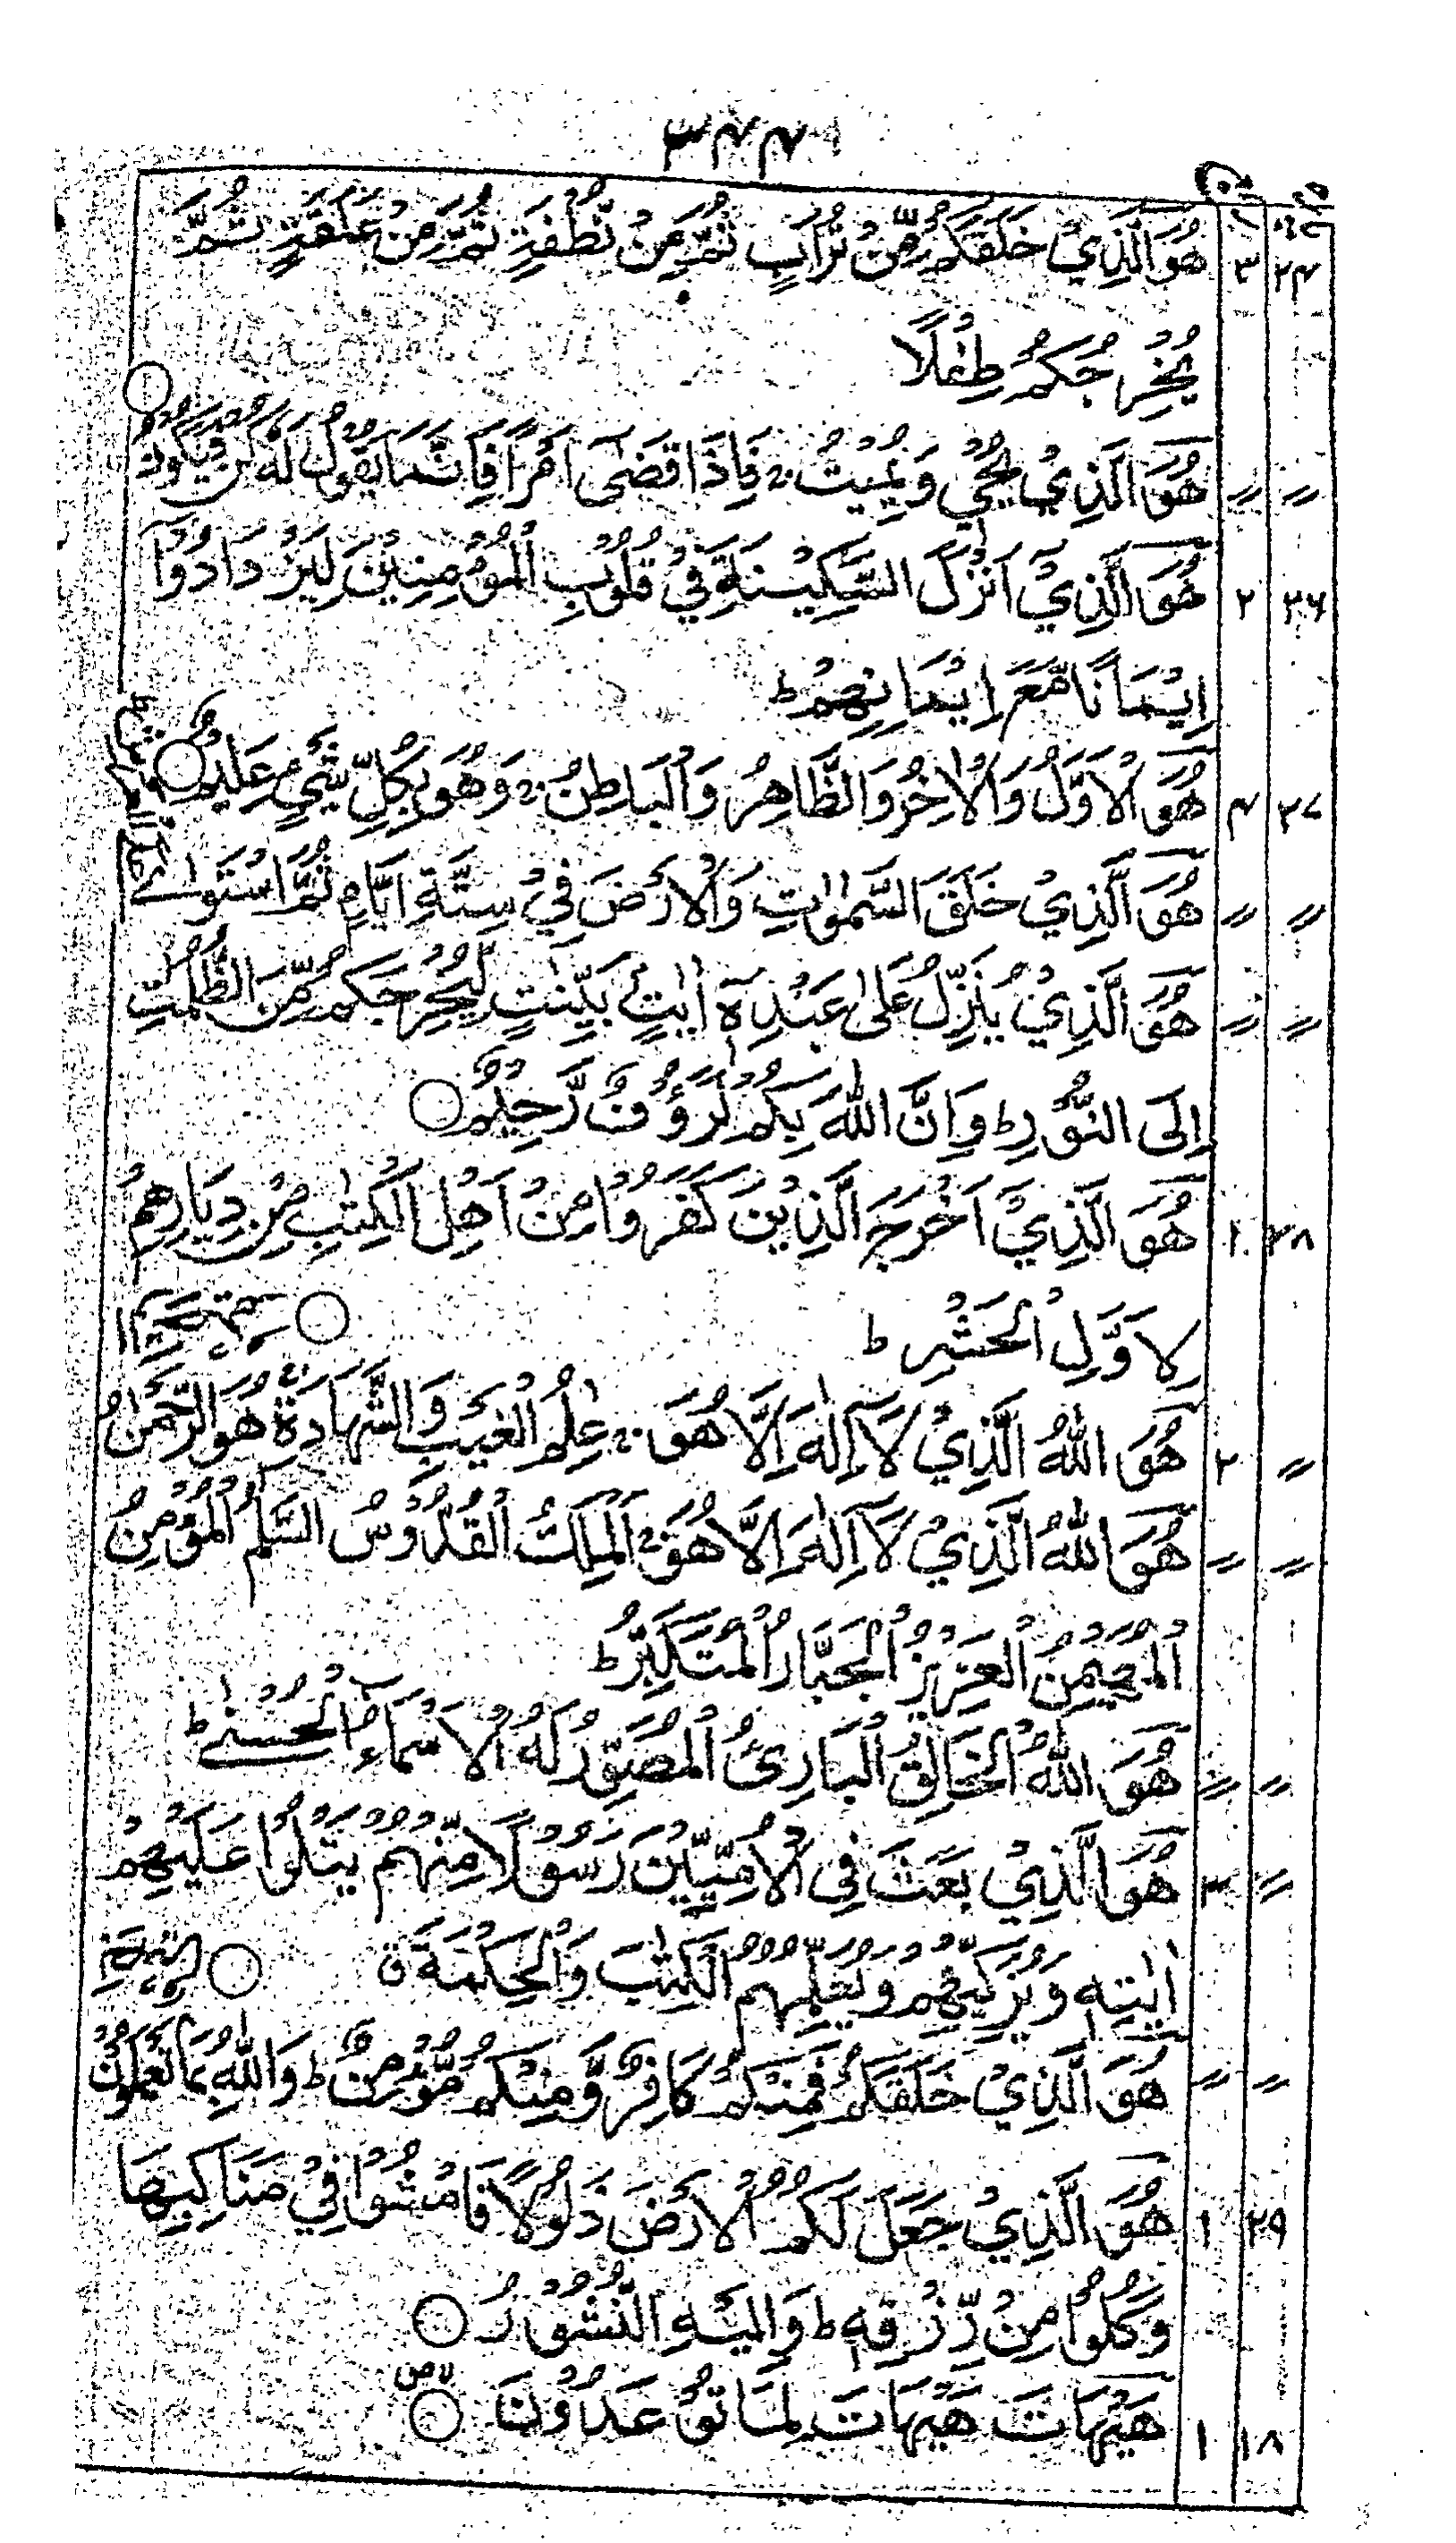 ۳۴۴
۲۴ ۳ هُوَ الَّذِيْ خَلَقَكُمْ مِّنْ تُرَابٍ ثُمَّ مِنْ نُّطْفَةٍ ثُمَّ مِنْ عَلَقَةٍ ثُمَّ
يُخْرِجُكُمْ طِفْلًا
〃 〃 هُوَ الَّذِيْ يُحْيٖ وَيُمِيْتُ ۚ فَاِذَا قَضٰى اَمْرًا فَاِنَّمَا يَقُوْلُ لَهٗ كُنْ فَيَكُوْنُ ○
۲۶ ۲ هُوَ الَّذِيْٓ اَنْزَلَ السَّكِيْنَةَ فِيْ قُلُوْبِ الْمُؤْمِنِيْنَ لِيَزْدَادُوْٓا
اِيْمَانًا مَّعَ اِيْمَانِهِمْ ؕ
۲۷ ۴ هُوَ الْاَوَّلُ وَالْاٰخِرُ وَالظَّاهِرُ وَالْبَاطِنُ ۚ وَهُوَ بِكُلِّ شَيْءٍ عَلِيْمٌ ○
〃 〃 هُوَ الَّذِيْ خَلَقَ السَّمٰوٰتِ وَالْاَرْضَ فِيْ سِتَّةِ اَيَّامٍ ثُمَّ اسْتَوٰى
〃 〃 هُوَ الَّذِيْ يُنَزِّلُ عَلٰى عَبْدِهٖٓ اٰيٰتٍ بَيِّنٰتٍ لِّيُخْرِجَكُمْ مِّنَ الظُّلُمٰتِ
اِلَى النُّوْرِ ؕ وَاِنَّ اللّٰهَ بِكُمْ لَرَءُوْفٌ رَّحِيْمٌ ○
۲۸ ۱ هُوَ الَّذِيْٓ اَخْرَجَ الَّذِيْنَ كَفَرُوْا مِنْ اَهْلِ الْكِتٰبِ مِنْ دِيَارِهِمْ
لِاَوَّلِ الْحَشْرِ ؕ ○
〃 ۲ هُوَ اللّٰهُ الَّذِيْ لَآ اِلٰهَ اِلَّا هُوَ ۚ عٰلِمُ الْغَيْبِ وَالشَّهَادَةِ ۚ هُوَ الرَّحْمٰنُ
〃 〃 هُوَ اللّٰهُ الَّذِيْ لَآ اِلٰهَ اِلَّا هُوَ ۚ اَلْمَلِكُ الْقُدُّوْسُ السَّلٰمُ الْمُؤْمِنُ
الْمُهَيْمِنُ الْعَزِيْزُ الْجَبَّارُ الْمُتَكَبِّرُ ؕ
〃 〃 هُوَ اللّٰهُ الْخَالِقُ الْبَارِئُ الْمُصَوِّرُ لَهُ الْاَسْمَآءُ الْحُسْنٰى ؕ
〃 ۳ هُوَ الَّذِيْ بَعَثَ فِى الْاُمِّيّٖنَ رَسُوْلًا مِّنْهُمْ يَتْلُوْا عَلَيْهِمْ
اٰيٰتِهٖ وَيُزَكِّيْهِمْ وَيُعَلِّمُهُمُ الْكِتٰبَ وَالْحِكْمَةَ ق ○
〃 〃 هُوَ الَّذِيْ خَلَقَكُمْ فَمِنْكُمْ كَافِرٌ وَّمِنْكُمْ مُّؤْمِنٌ ؕ وَاللّٰهُ بِمَا تَعْمَلُوْنَ
۲۹ ۱ هُوَ الَّذِيْ جَعَلَ لَكُمُ الْاَرْضَ ذَلُوْلًا فَامْشُوْا فِيْ مَنَاكِبِهَا
وَكُلُوْا مِنْ رِّزْقِهٖ ؕ وَاِلَيْهِ النُّشُوْرُ ○
۱۸ ۱ هَيْهَاتَ هَيْهَاتَ لِمَا تُوْعَدُوْنَ ○